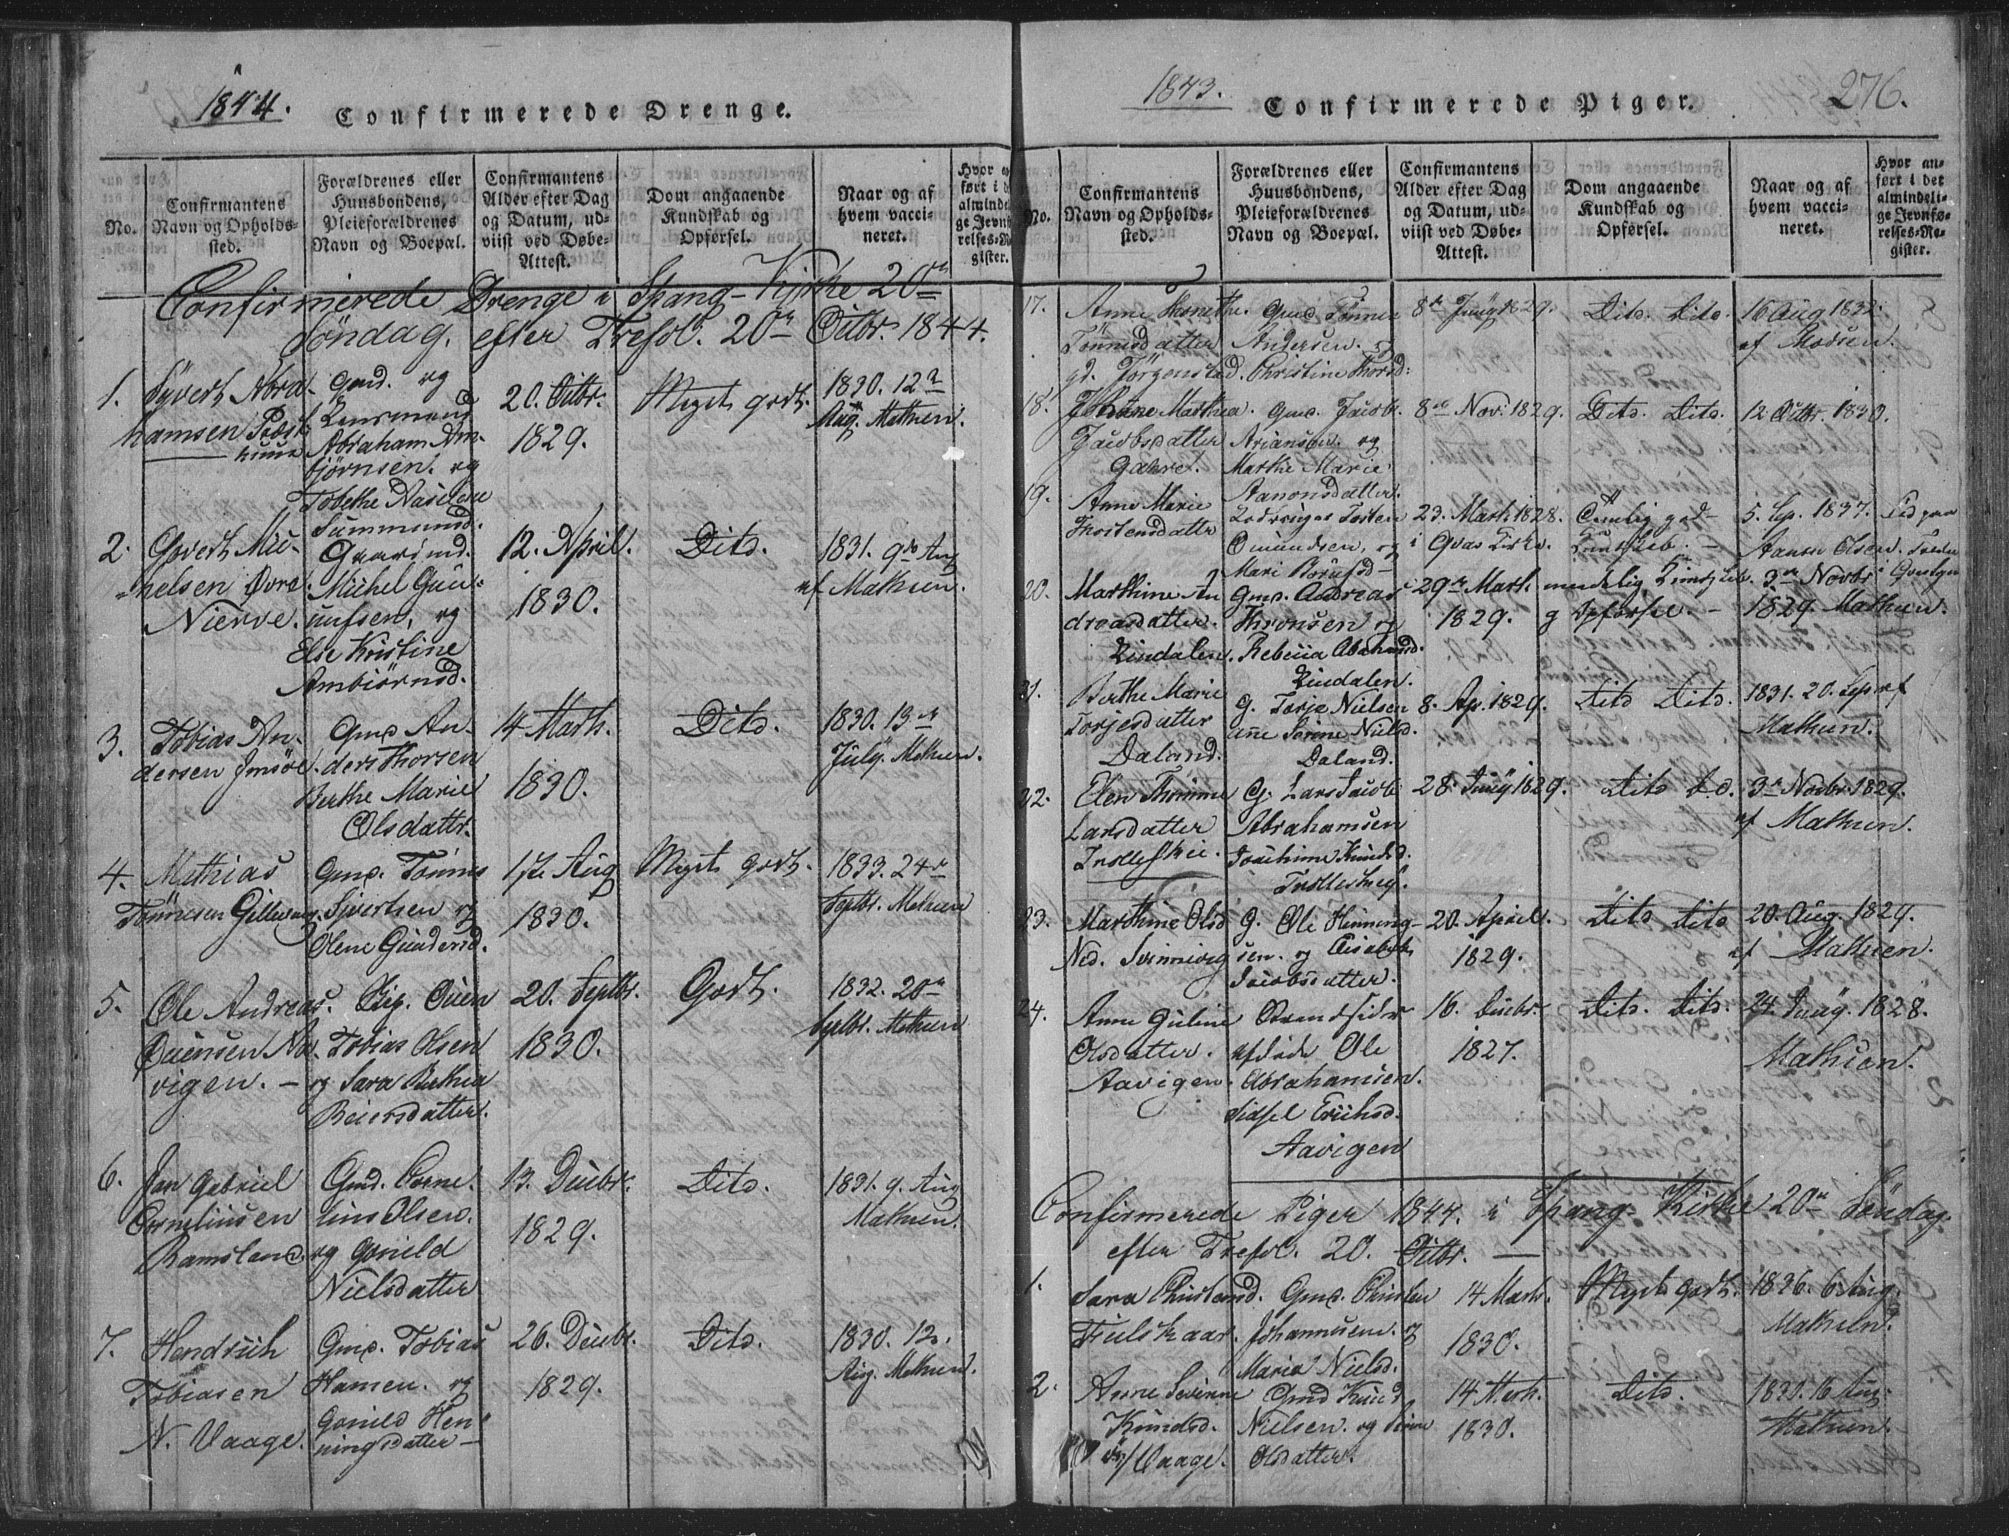 1844.
Confirmerede Drenge.
No.
Confirmantens
Navn og Opholds-
sted.
Forældrenes eller
Huusbondens,
Pleieforældrenes
Navn og Boepæl.
Confirmantens
Alder efter Dag
og Datum, ud-
viist ved Døbe-
Attest.
Dom angaaende
Kundskab og
Opførsel.
Naar og af
hvem vacci-
neret.
Confirmerede Drenge i Spang-Kirke 20de
Söndag. efter Trefol. 20de Octbr. 1844.
1.
Syvert Abra-
hamsen
Gmd. og
Lensmand
Abraham Am-
björnsen. og
Tobethe
20. Octbr.
1829.
Meget godt.
1830. 12te
Aug. Mathisen.
2.
Gjvert Mic-
helsen Övre
Nierve.
Gaardmd.
Michel
og
Else Kristine
Ambiörnsd.
12. April.
1830.
Dito.
1831. 9de Aug
af Mathisen.
3.
Tobias An-
dersen Imsöe.
Gmd An-
ders Thorsen
Berthe Marie
Olsdattr.
14 Marts.
1830.
Dito.
1830. 13de
July. Mathisen.
4.
Mathias
Tönnesen
Gmd. Tönnes
Sivertsen og
Olene Gundersd.
17. Aug
1830.
Meget godt.
1833. 24de
Septbr. Mathisen
5.
Ole Andreas.
Ouensen Aa-
vigen. –
Ouen
Tobias Olsen
og Sara Berthea
Beiersdatter.
20. Septbr.
1830.
Godt.
1832. 20de
Septbr. Mathisen
6.
Jan Gabriel
Corneliusen
Ramsland.
Gmd. Corne-
lius Olsen.
og Gunild
Nielsdatter
13. Decbr.
1829.
Dito.
1831. 9. Aug
Mathisen.
7.
Hendrich
Tobiasen
N. Vaage.
Gmd. Tobias
Hansen. og
Gunild Hen-
ningsdatter –
26. Decbr.
1829.
Dito.
1830. 12.
Aug. Mathisen.
1843.
Confirmerede Piger.
276.
No.
Confirmantens
Navn og Opholds-
sted.
Forældrenes eller
Huusbondens,
Pleieforældrenes
Navn og Boepæl.
Confirmantens
Alder efter Dag
og Datum, ud-
viist ved Døbe-
Attest.
Dom angaaende
Kundskab og
Opførsel.
Naar og af
hvem vacci-
neret.
Hvor an-
ført i det
almindeli-
ge Jevnfø-
relses-Re-
gister.
17.
Anne
Tönnesdatter
gd. Jörgenstad.
Gmd. Tönnes
Andersen. og
Christine Thorsd:
8de Juny 1829.
Dito. Dito.
16 Aug 1832.
af
18.
Mathea.
Jacobsdatter
Gmd. Jacob
Arianson. og
Marthe Marie
Aanonsdatter.
8de Nov. 1829.
Dito. Dito.
12 Octbr. 1830.
19.
Anne Marie
Thostensdattr
Omundsen, og
Mari
23. Marts 1828.
i Qvas Kirke.
Temlig god
Kundskab. –
5. Sep. 1837.
Aanon Olsen.
20.
Marthine An-
dreasdatter.
Lindalen.
Gmd. Andreas
Thronsen og
Rebecca
Lindalen.
29de Marts
1829.
maadelig Kundskab.
og Opförsel. –
3de Novbr
1829. Mathisen.
21.
Berthe Marie
Torjesdatter
Daland.
G. Torje Nielsen
Anne Serine Nielsd.
Daland.
8. Ap. 1829.
Dito Dito.
1831. 20. Sep af
Mathisen.
22.
Elen Thomine
Larsdatter
G. Lars Jacob
Abrahamsen
Joachime Knudsd.
28. Juny 1829.
Dito Do.
3de Novbr 1829.
af Mathisen.
23.
Marthine Olsd
Ned. Svinnevig
G. Ole Henning-
sen. og Elisabeth
Jacobsdatter.
20. April.
1829.
Dito Dito
20. Aug. 1829.
af Mathisen.
24.
Anne Guline
Olsdatter.
Aavigen.
Strandsidder
afdöde Ole
Abrahamsen.
Sidsel Erichsd.
Aavigen
16. Decbr.
1827.
Dito. Dito.
24. Juny. 1828.
Mathisen.
Confirmerede Piger 1844. i Spang. Kirke 20de Söndag.
efter Trefol. 20. Octbr. —
1.
Sara Christensd.
Fuelskaar.
Gmd. Christen
Johannesen. og
Maria Nielsd.
14 Marts.
1830.
Meget godt.
1836. 6 Aug.
Mathisen.
2.
Anne Sevrine
Knudsd.
Vaage.
Gmd Knud
Nielsen. og
Olsdatter.
14 Marts.
1830.
Dito.
16 Aug.
Mathisen.